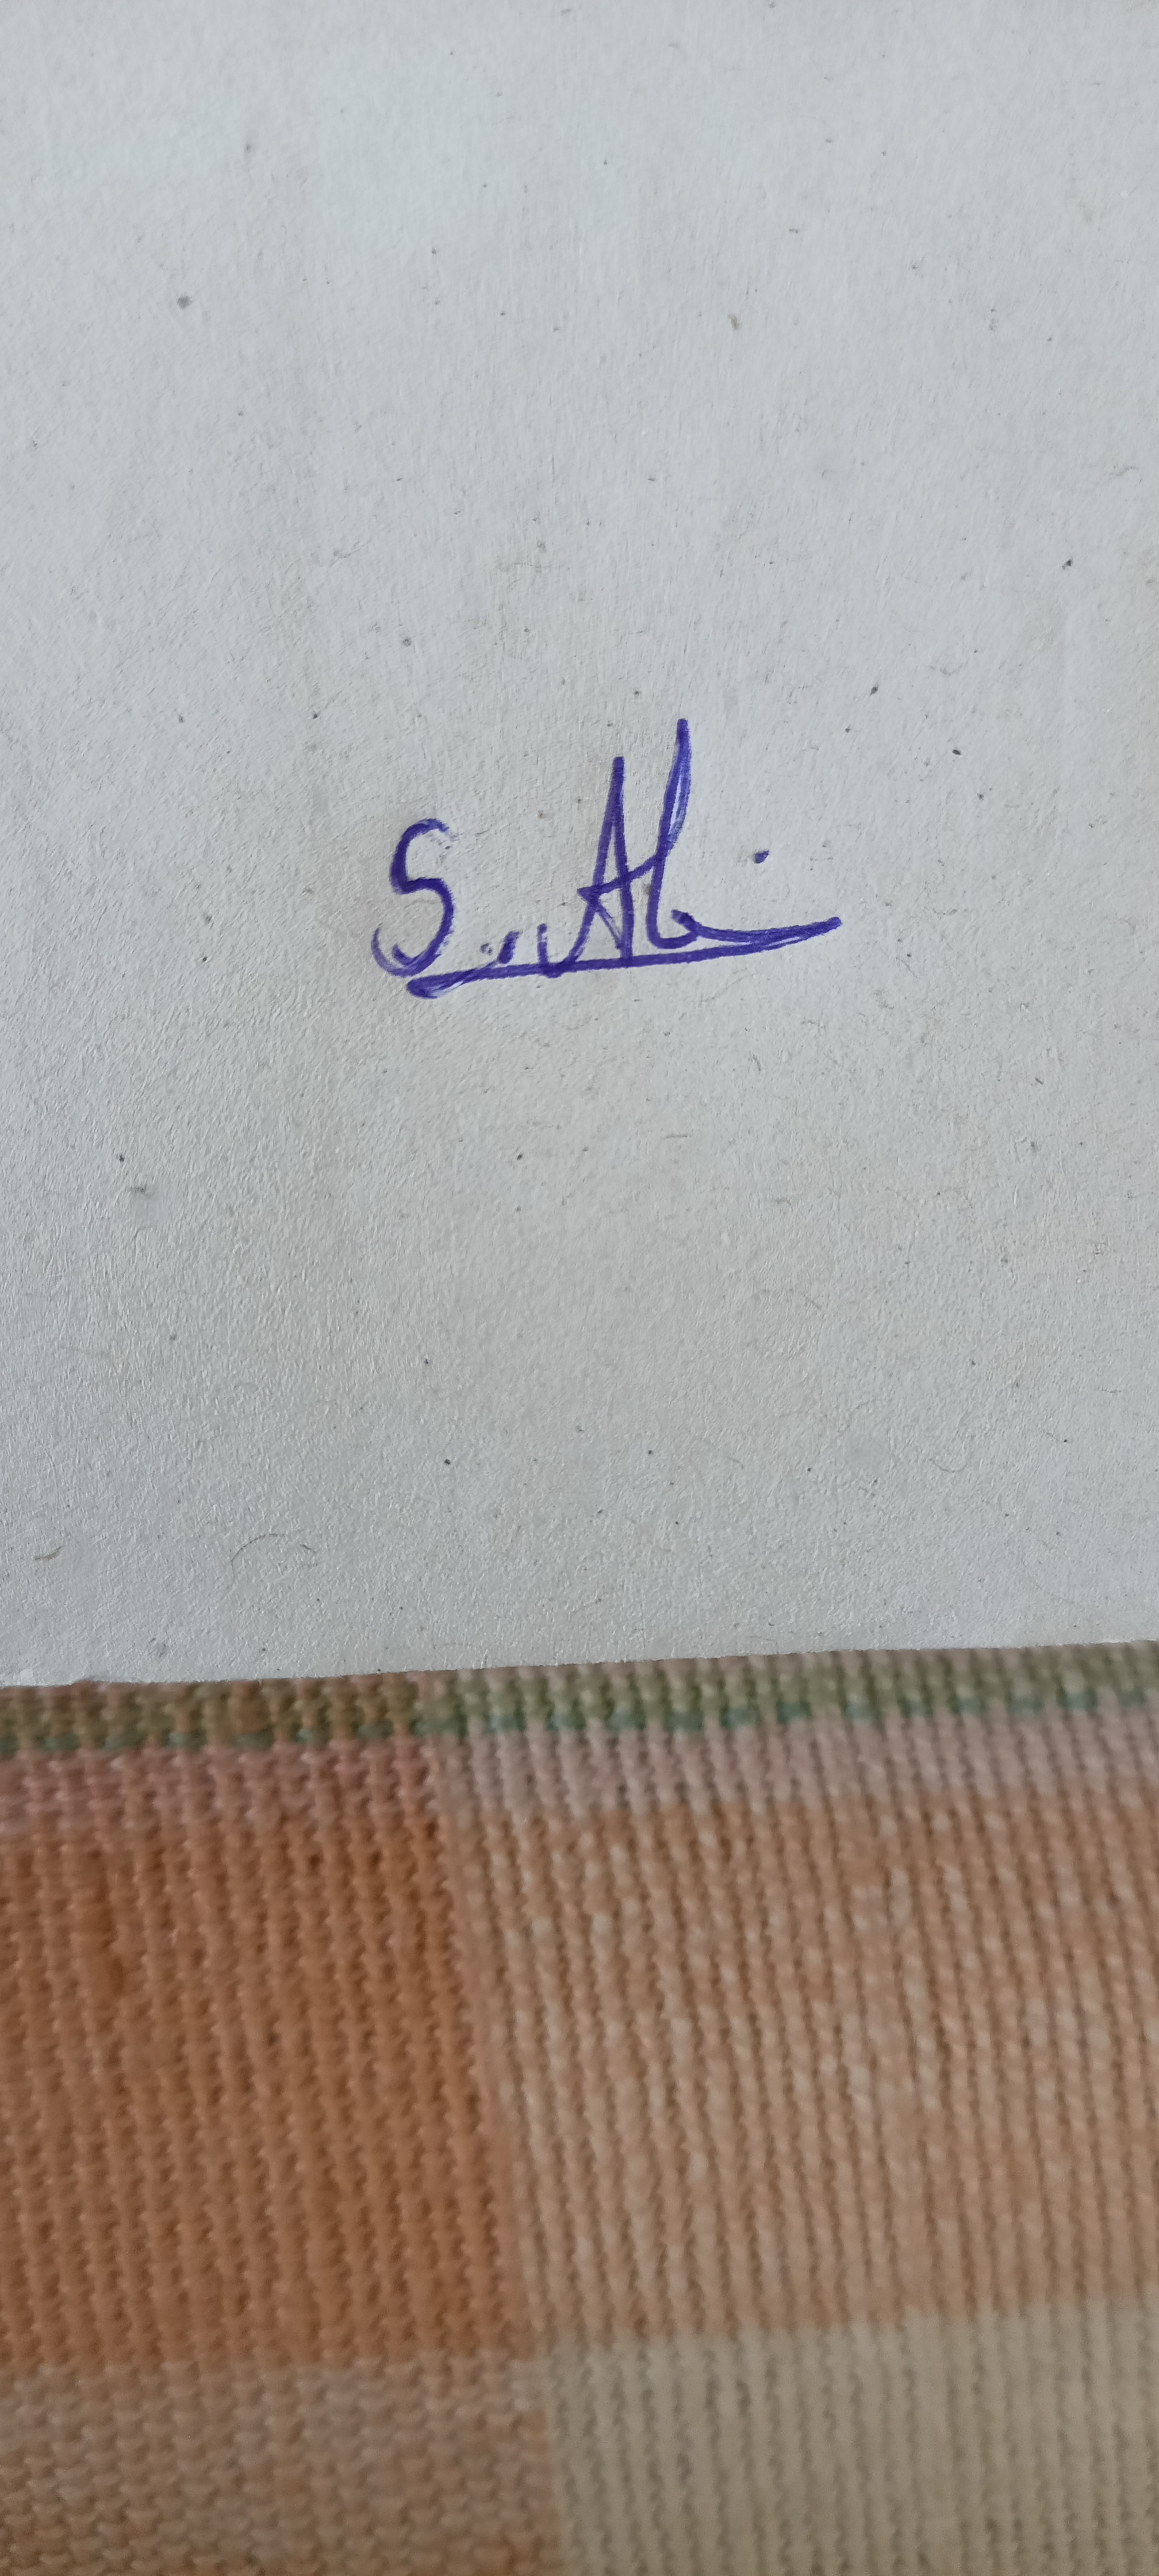 S. Ali